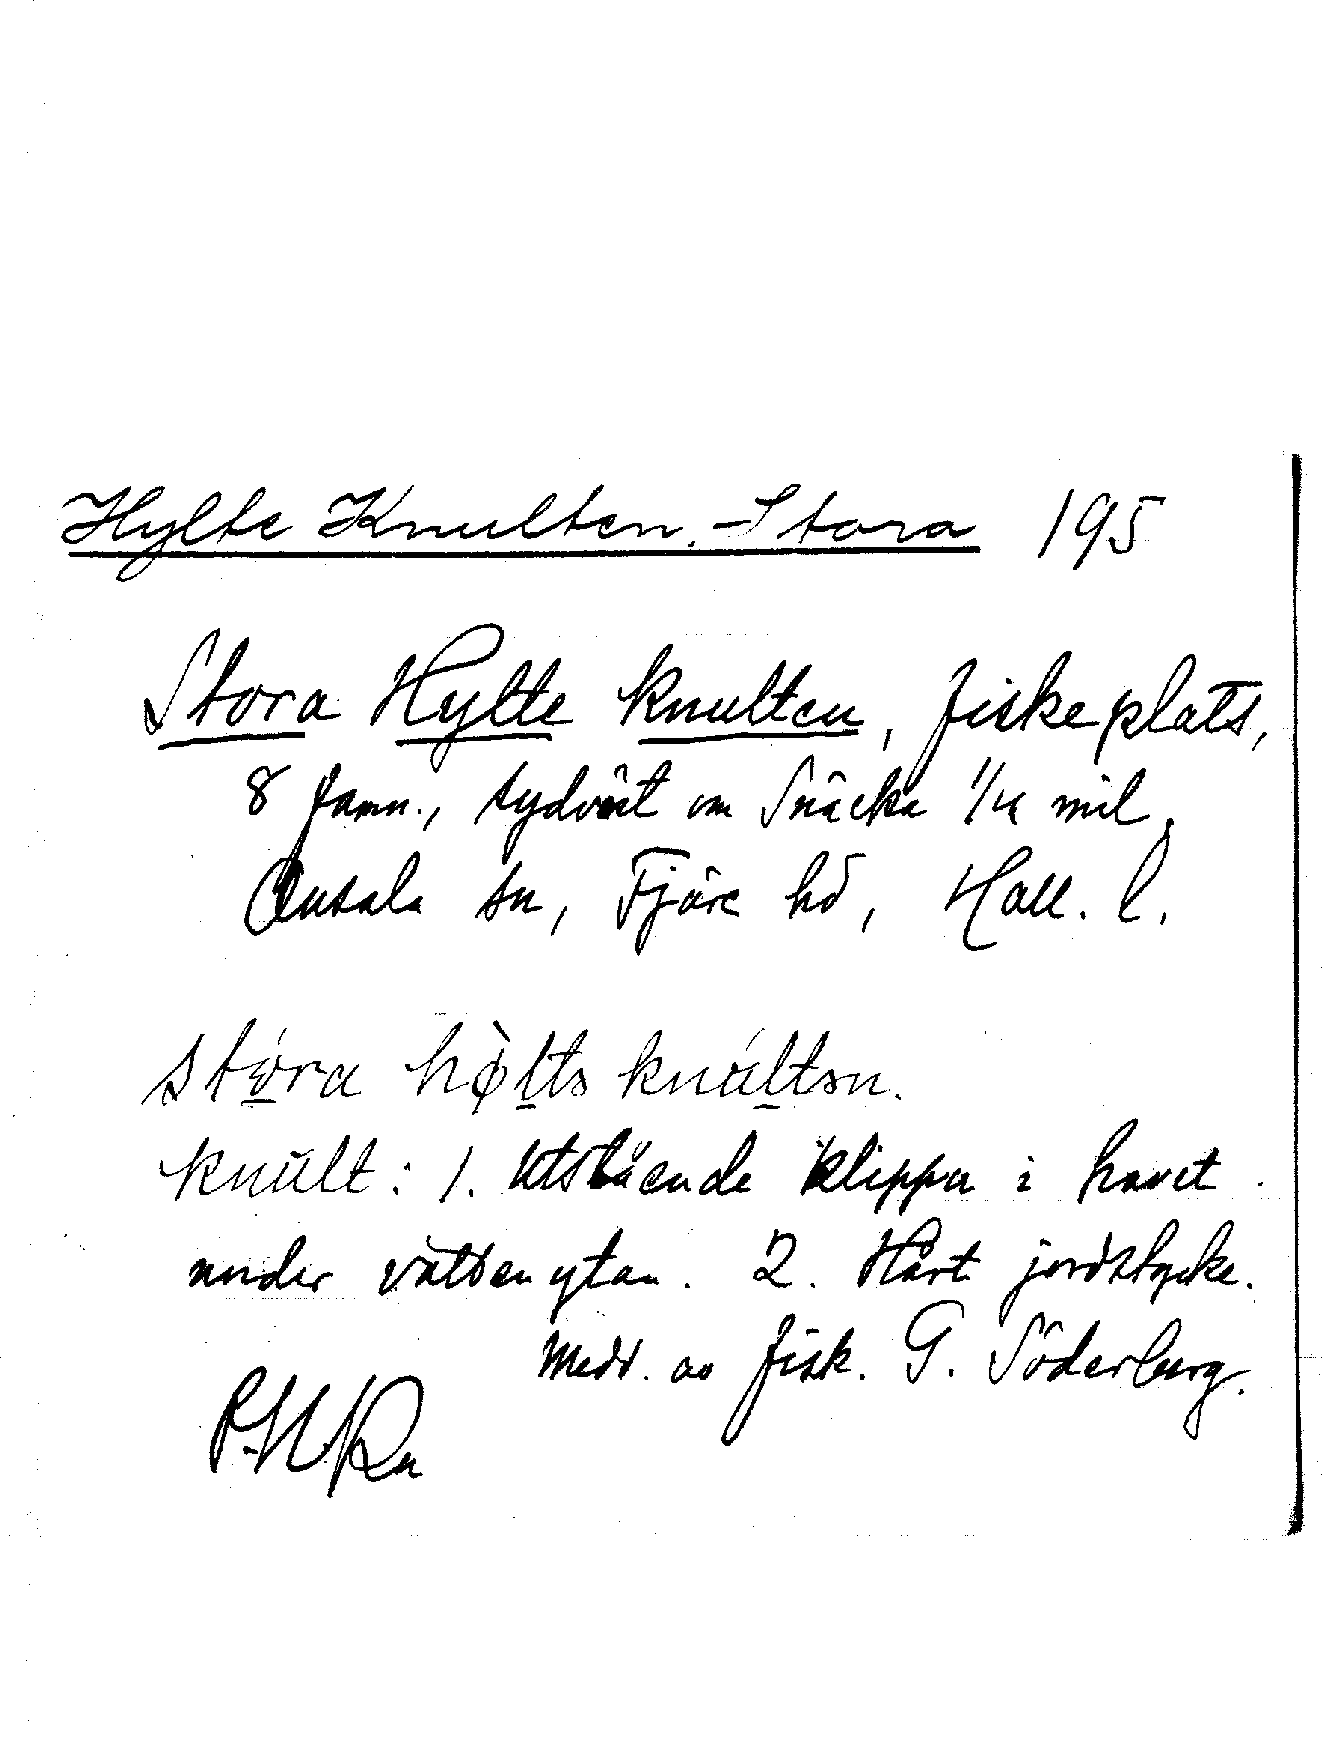 Hylte Knulten, Stora 195
Stora Hylte knulten, fiskeplats,
8 famn., sydväst om Snäcka 1/4 mil,
Onsala sn, Fjäre hd, Hall. l.
stóra hø̀lts knúltən.
knult: 1. Utstående klippa i havet
under vattenytan. 2. Hårt jordstycke.
Medd. av fisk. G. Söderberg.